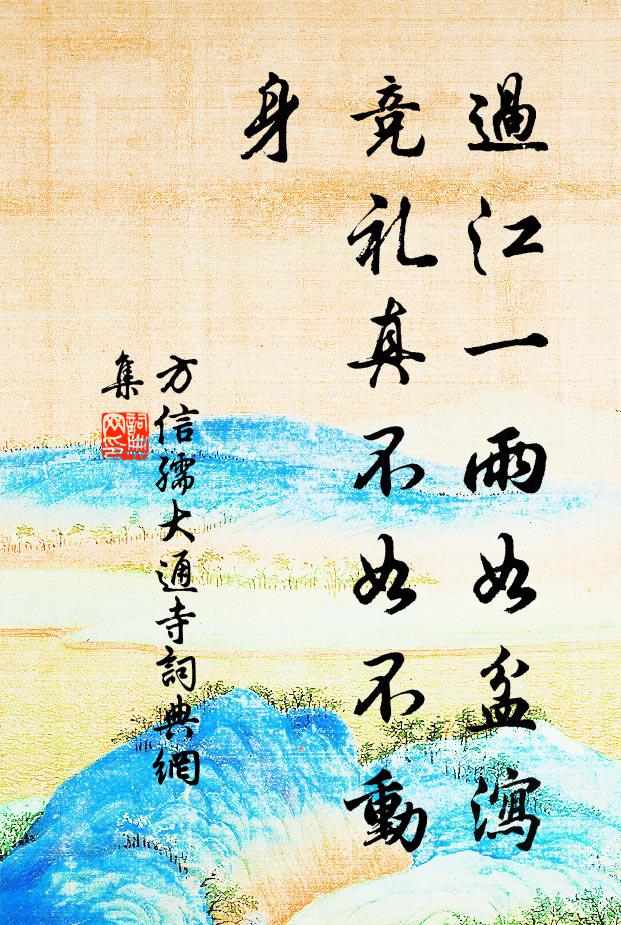 過江一雨如盆瀉
竞礼真不如不動
身
方信孺大通寺詞典網
集
詞典
网印